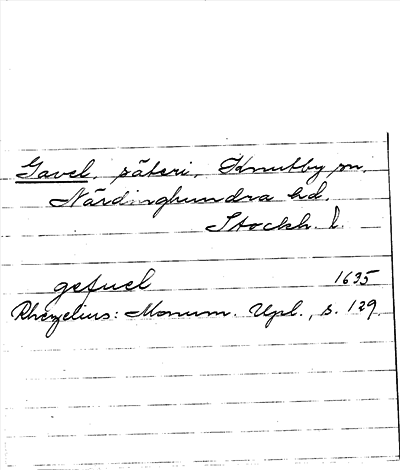 Gavel, säteri, Knutby sn.
Närdinghundra hd.
Stockh. l.
gefuel 1635
Rhezelius: Monum. Upl., s. 129.